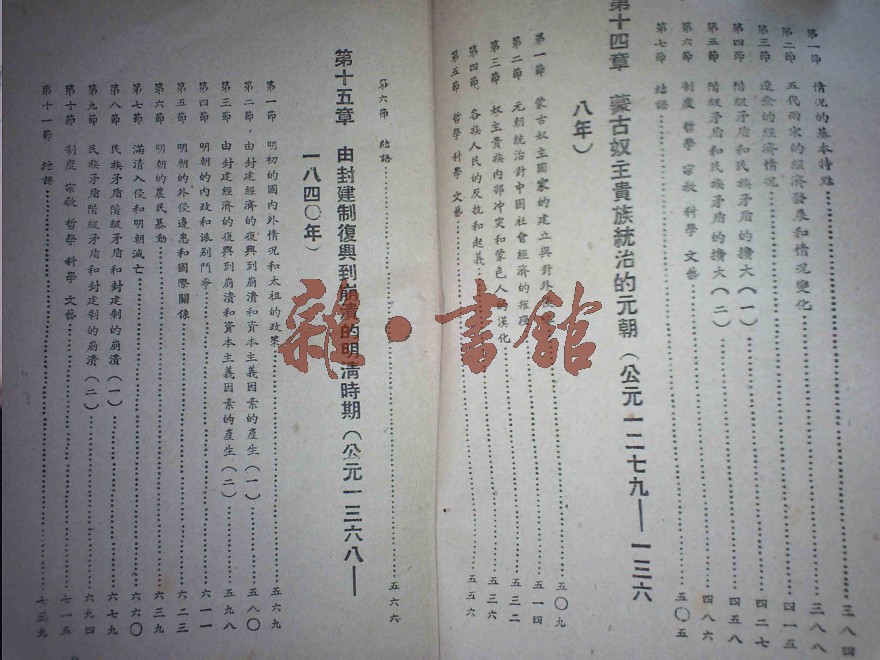 三八四
第一節　情况的基本特點……三八八
第二節　五代兩宋的經濟發展和情况變化……四一五
第三節　遼金的經濟情况……四二七
第四節　階級矛盾和民族矛盾的擴大（一）……四五八
第五節　階級矛盾和民族矛盾的擴大（二）……四八六
第六節　制度　哲學　宗敎　科學　文藝……五〇五
第七節　結語
第十四章　蒙古奴主貴族統治的元朝（公元一二七九——一三六
八年）
第一節　蒙古奴主國家的建立與對外……五〇九
第二節　元朝統治對中國社會經濟的……五一四
第三節　奴主貴族內部冲突和蒙色人的漢化……五三二
第四節　各族人民的反抗和起義……五三六
第五節　哲學　科學　文藝……五五六
第六節　結語……五六六
第十五章　由封建制復興到崩潰的明清時期（公元一三六八——
一八四〇年）
第一節　明初的國內外情况和太祖的政策……五六九
第二節　由封建經濟的復興到崩潰和資本主義因素的產生（一）……五八〇
第三節　由封建經濟的復興到崩潰和資本主義因素的產生（二）……五九八
第四節　明朝的內政和派别鬥爭……六一一
第五節　明朝的外侵邊患和國際關係……六二三
第六節　明朝的農民暴動……六三九
第七節　滿清入侵和明朝滅亡……六六〇
第八節　民族矛盾階級矛盾和封建制的崩潰（一）……六七九
第九節　民族矛盾階級矛盾和封建制的崩潰（二）……六九四
第十節　制度　宗敎　哲學　科學　文藝……七一五
第十一節　結語……七三九
雜·書館